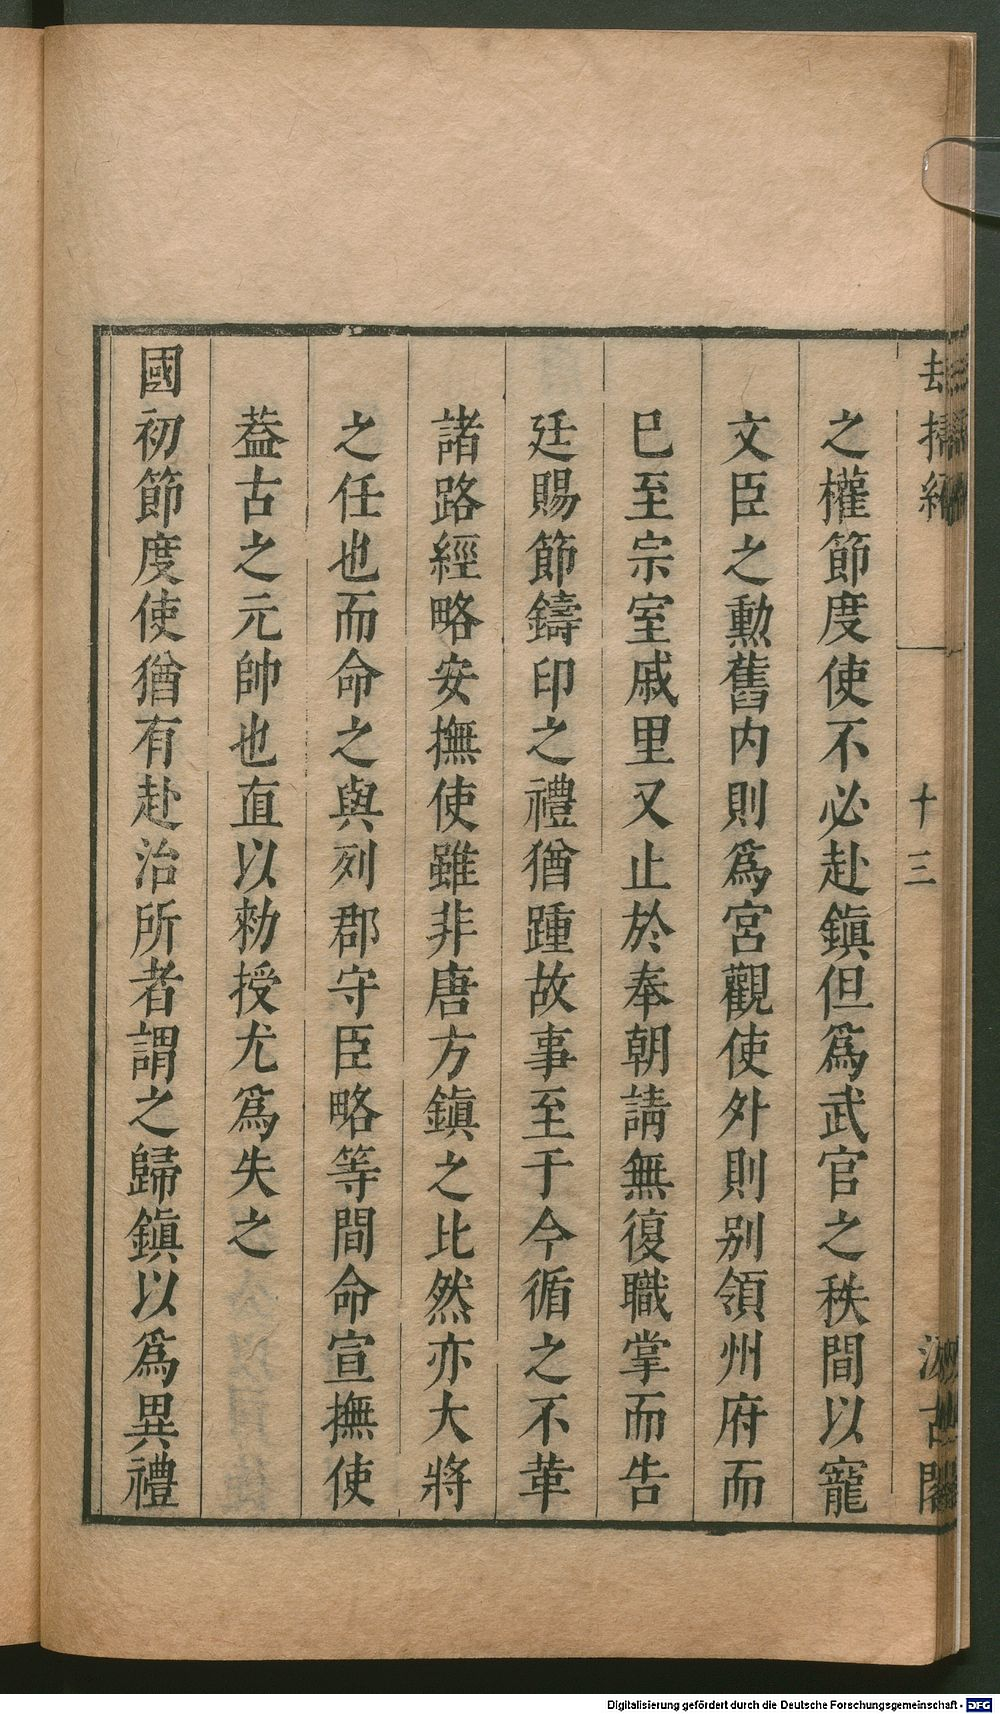 之權節度使不必赴鎭但爲武官之秩間以寵
文臣之勲舊内則爲宮觀使外則别領州府而
已至宗室戚里又止於奉朝請無復職掌而告
廷賜節鑄印之禮猶踵故事至于今循之不革
諸路經略安撫使雖非唐方鎭之比然亦大將
之任也而命之與列郡守臣略等間命宣撫使
葢古之元帥也直以勑授尤爲失之
國初節度使猶有赴治所者謂之歸鎭以爲異禮
十三
Digitalisierung gefördert durch die Deutsche Forschungsgemeinschaft - DFG